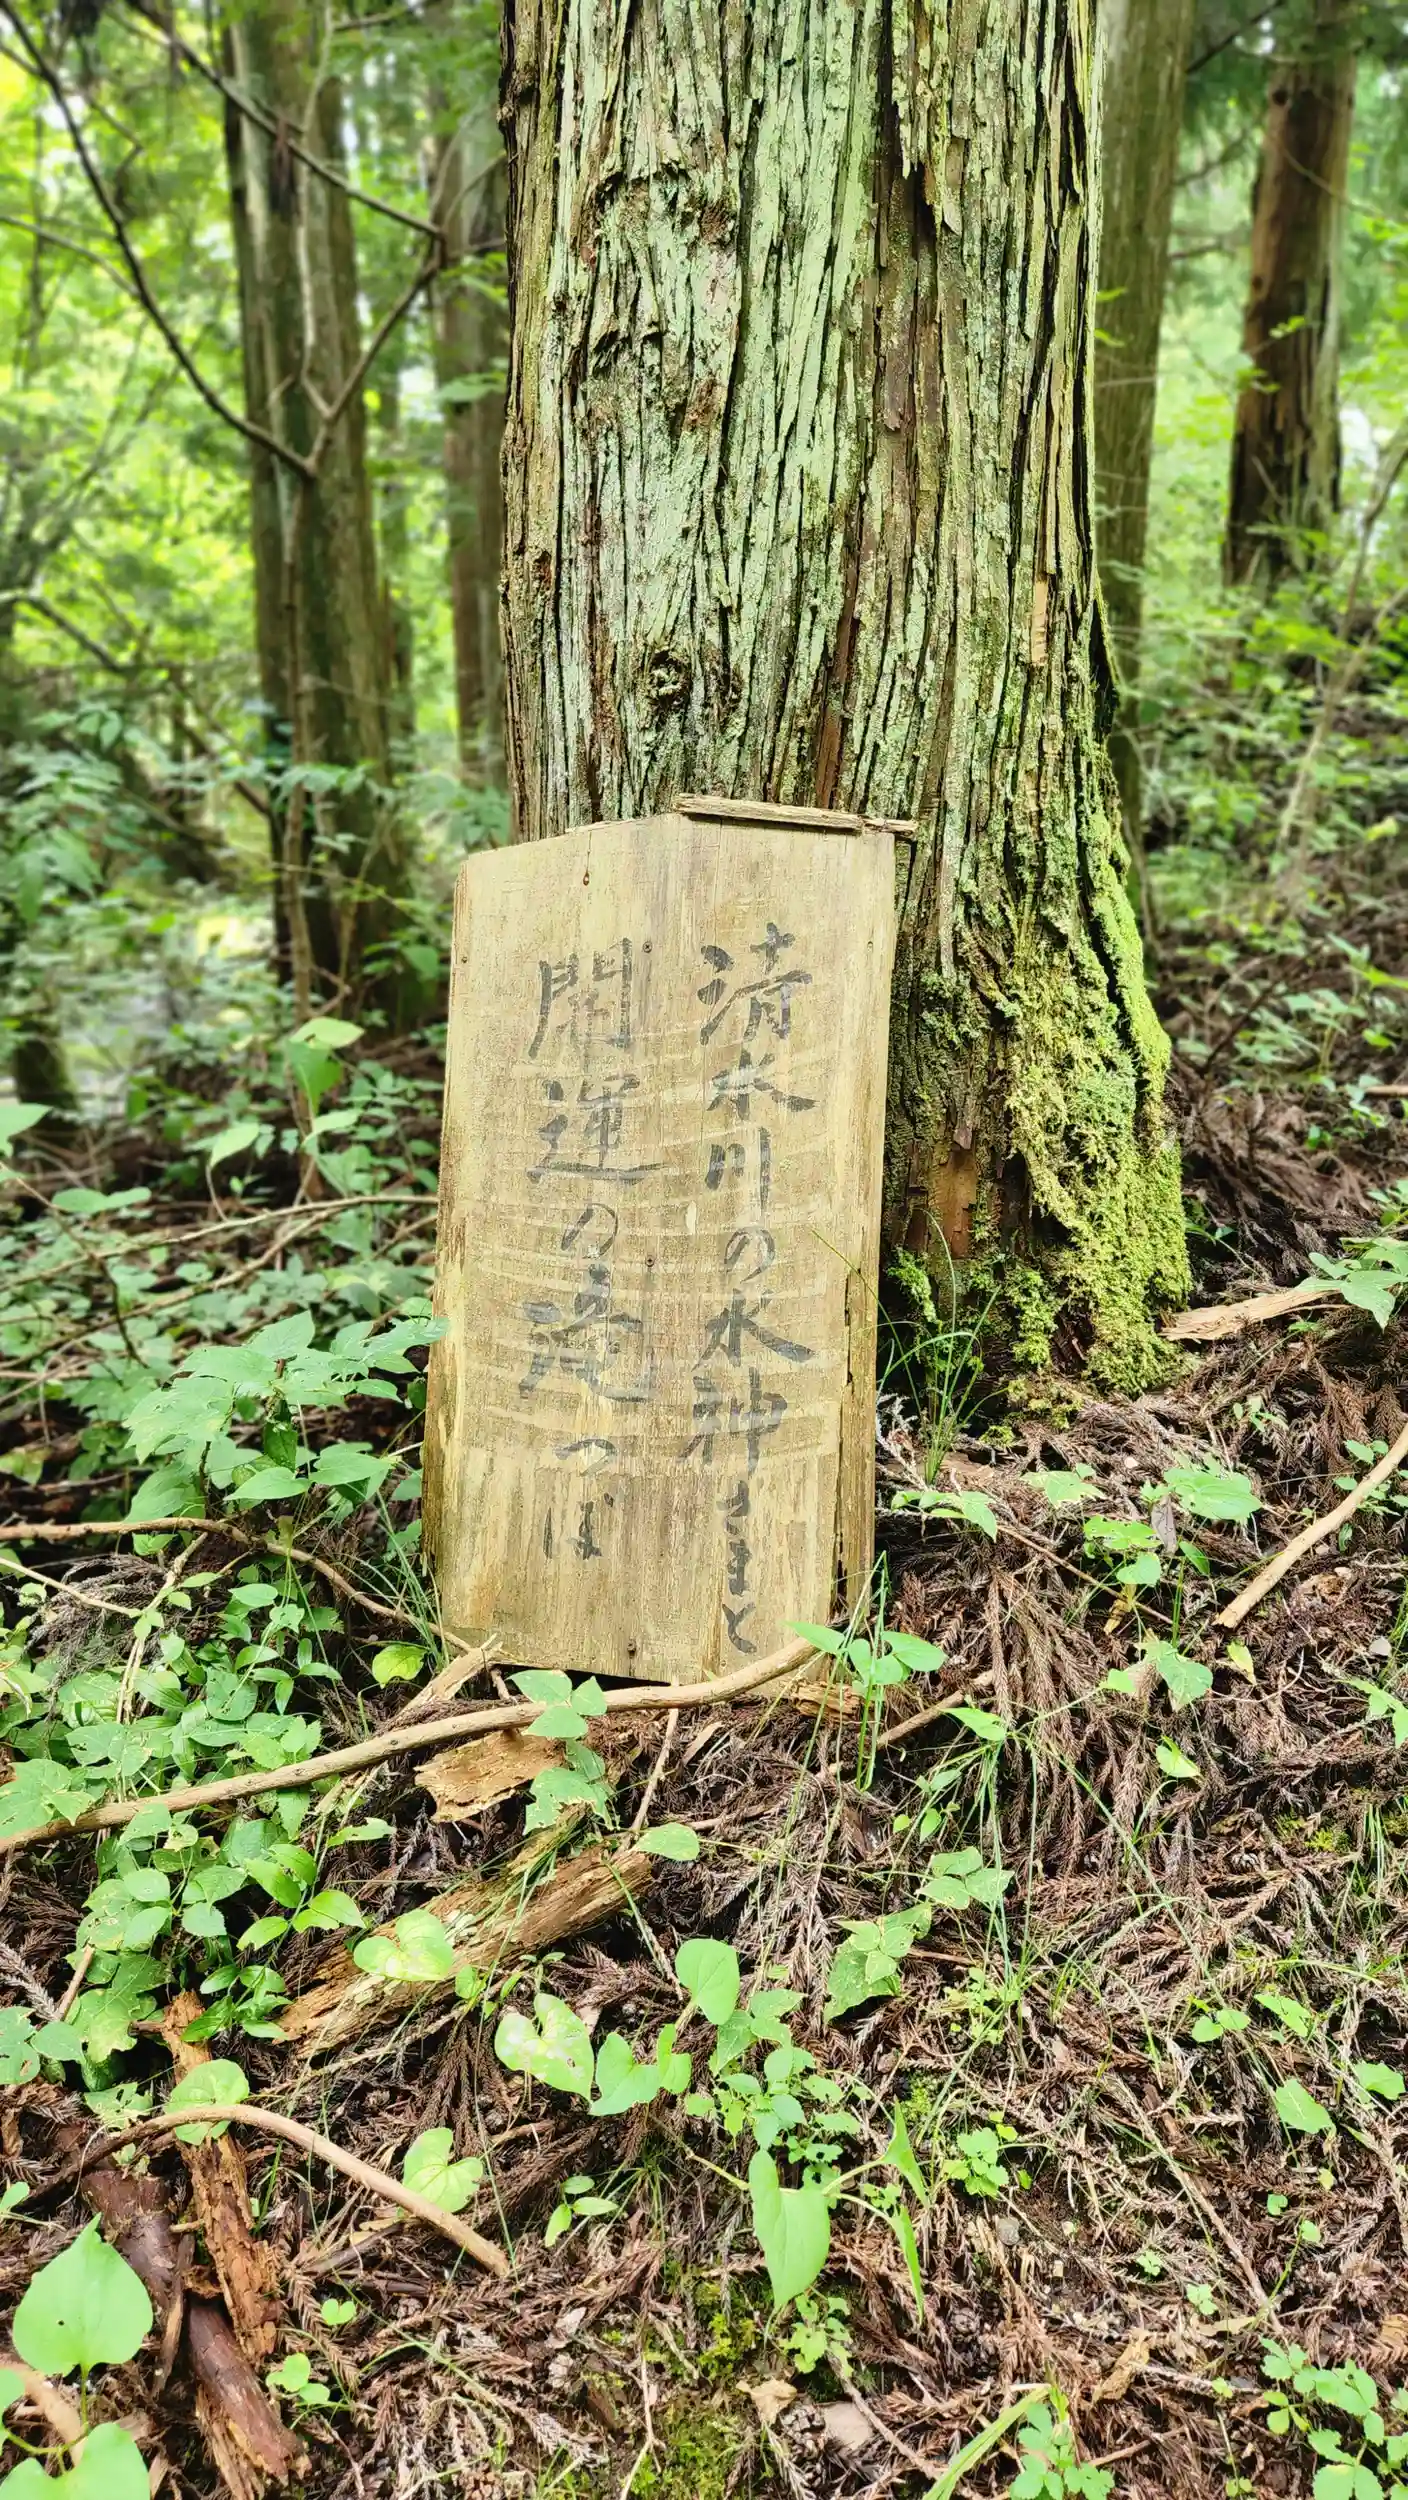 清水川の水神さまと
開運の滝つぼ